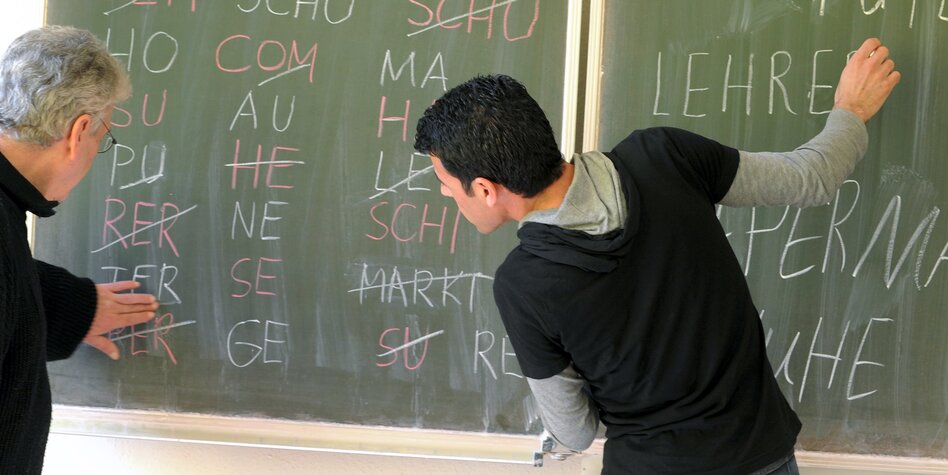 SCHU
HO COM MA
SU AU H
PU HE LE
RER NE SCHI
TER SE MARKT
RER GE SU RE
LEHRE
PERNA
UHE